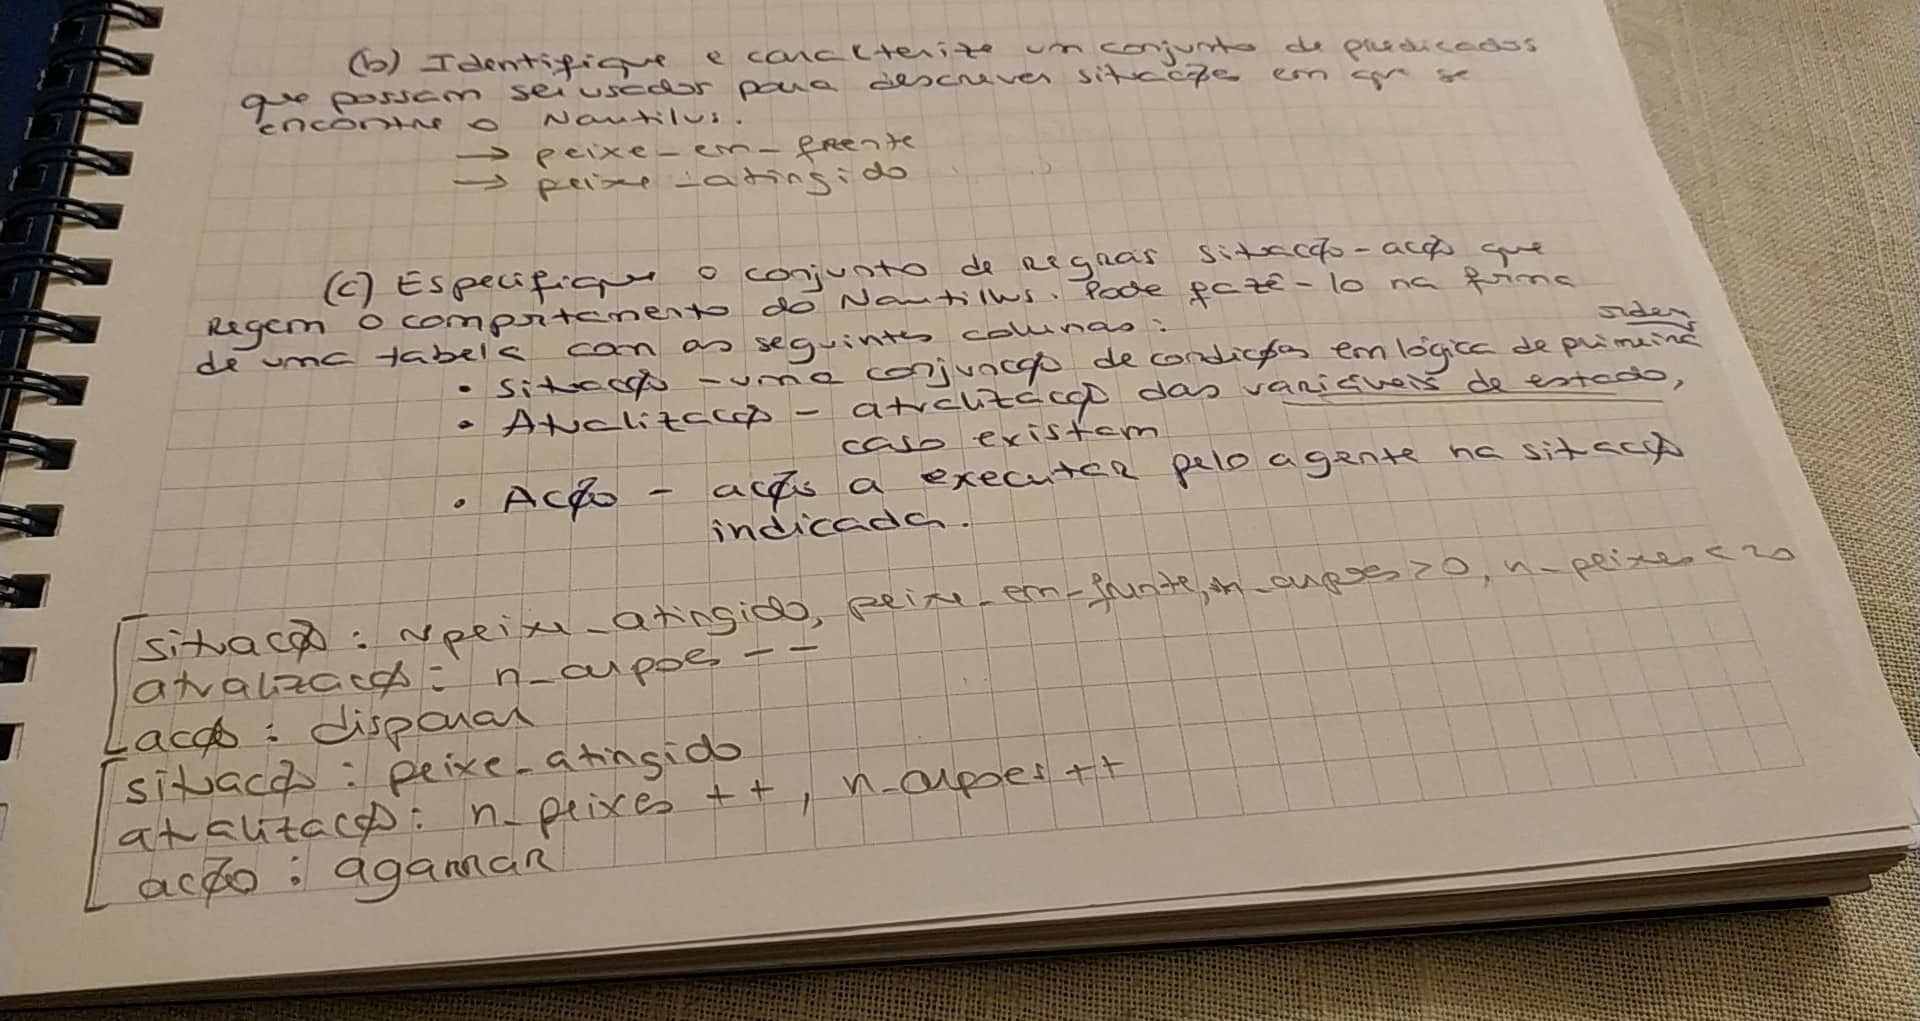 (b) Identifique e caracterize um conjunto de predicados
que possam ser usados para descrever situações em que se
encontre o Nautilus.
→ peixe-em-frente
→ peixe-atingido
(c) Especifique o conjunto de regras situação-acção que
regem o comportamento do Nautilus. Pode fazê-lo na forma
de uma tabela com as seguintes colunas:
ordem
• Situação - uma conjunção de condições em lógica de primeira
• Atualização - atualização das variáveis de estado,
caso existam
• Acção - acção a executar pelo agente na situação
indicada.
situação: ~peixe_atingido, peixe_em_frente, n_arpoes > 0, n_peixes < 20
atualização: n_arpoes --
acção: disparar
situação: peixe_atingido
atualização: n_peixes ++, n_arpoes ++
acção: agarrar